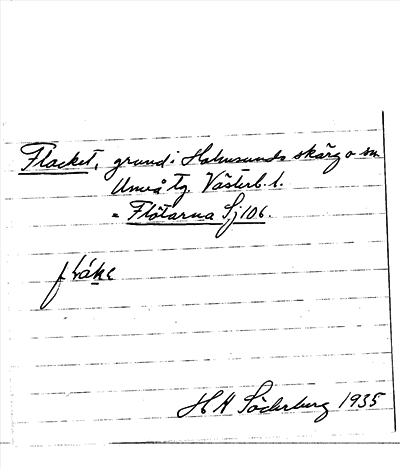 Flacket, grund i Holmsunds skärg o sn
Umeå tg. Västerb. l.
= Flötarna Sj 106.
H H Söderburg 1935